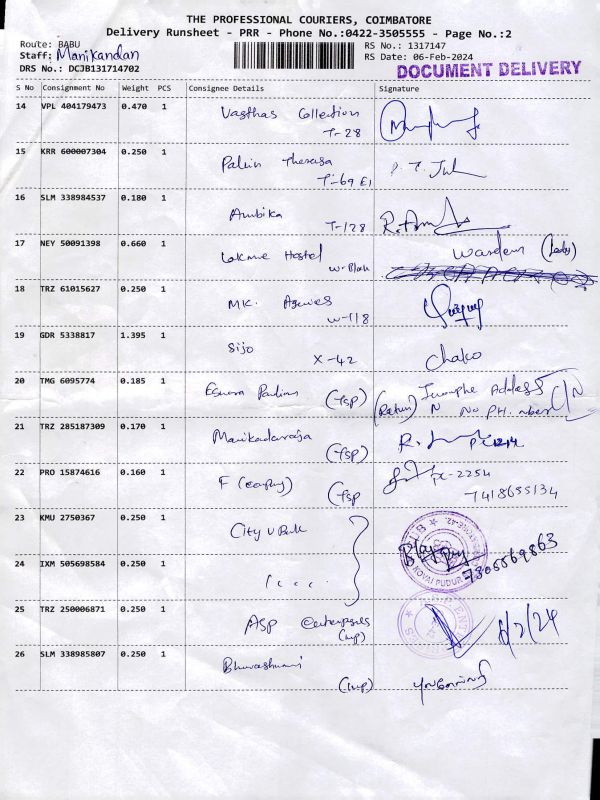 THE PROFESSIONAL COURIERS, COIMBATORE
Delivery Runsheet - PRR - Phone No.:0422-3505555 - Page No.:2
Route: BABU
Staff: Manikandan
DRS No.: DCJB131714702
RS No.: 1317147
RS Date: 06-Feb-2024
DOCUMENT DELIVERY
S No Consignment No Weight PCS Consignee Details Signature
14 VPL 404179473 0.470 1 Vasthas Collection
T-28
15 KRR 600007304 0.250 1
T-69 E1
16 SLM 338984537 0.180 1 Ambika
T-128
17 NEY 50091398 0.660 1 Lakme Hostel Warden (Lady)
W-Blok
18 TRZ 61015627 0.250 1 MK.
W-118
19 GDR 5338817 1.395 1 Sijo chako
X-42
20 TMG 6095774 0.185 1 (TSP) (Return)
No PH. nber
21 TRZ 285187309 0.170 1 Manikadanraja
(TSP)
22 PRO 15874616 0.160 1 F (TSP PC-2254
7418655134
23 KMU 2750367 0.250 1 City U Bank
24 IXM 505698584 0.250 1 7305569863
KOVAI PUDUR
25 TRZ 250006871 0.250 1 ASP Enterprises 6/2/24
26 SLM 338985807 0.250 1